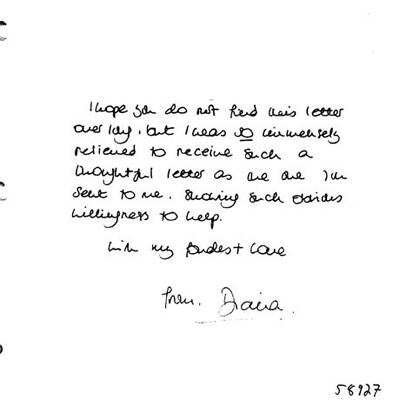 I hope you do not find this letter
over long, but I was so immensely
relieved to receive such a
thoughtful letter as the one you
sent to me, showing such obvious
willingness to help.
With my fondest love
from, Diana.
58927